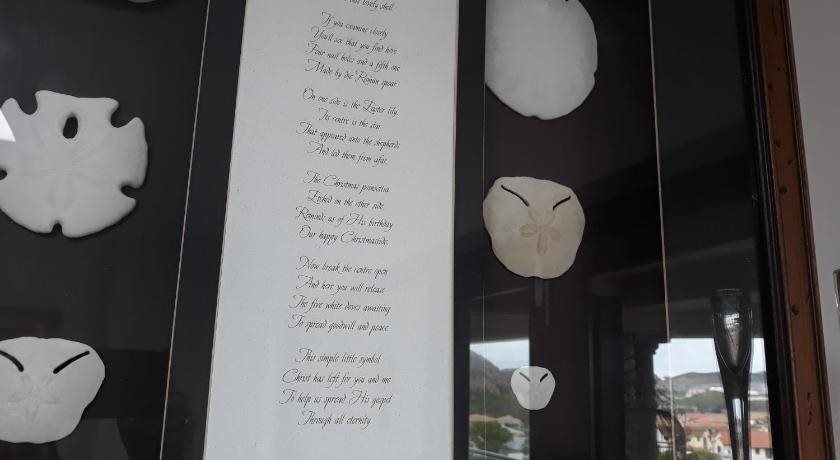 lovely shell.
If you examine closely
You'll see that you find here
Four nail holes and a fifth one
Made by the Roman spear
On one side is the Easter lily
Its centre is the star
That appeared unto the shepherds
And led them from afar.
The Christmas poinsettia
Etched on the other side
Reminds us of His birthday
Our happy Christmastide.
Now break the centre open
And here you will release
The five white doves awaiting
To spread goodwill and peace
This simple little symbol
Christ has left for you and me
To help us spread His gospel
Through all eternity.